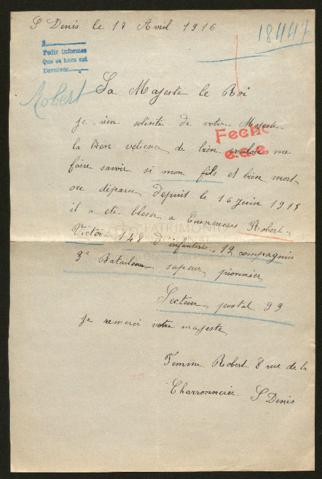 St Denis le 18 Avril 1916
18447
A
Pedir informes
Que se haga así
Robert
Sa Majeste le Roi
je vien solicité de votre Majeste
la bien de bien me
Fecho
faire savoir si mon fils et bien mort
ou disparu depuit le 16 juin 1915
il a ete blesser a Robert
Victor 149 d'infanterie 12 compagnie
3e Bataillon sapeur pionnier
Secteur postal 99
je remerci votre majeste
Femme Robert 8 rue de la
Charronnerie St Denis